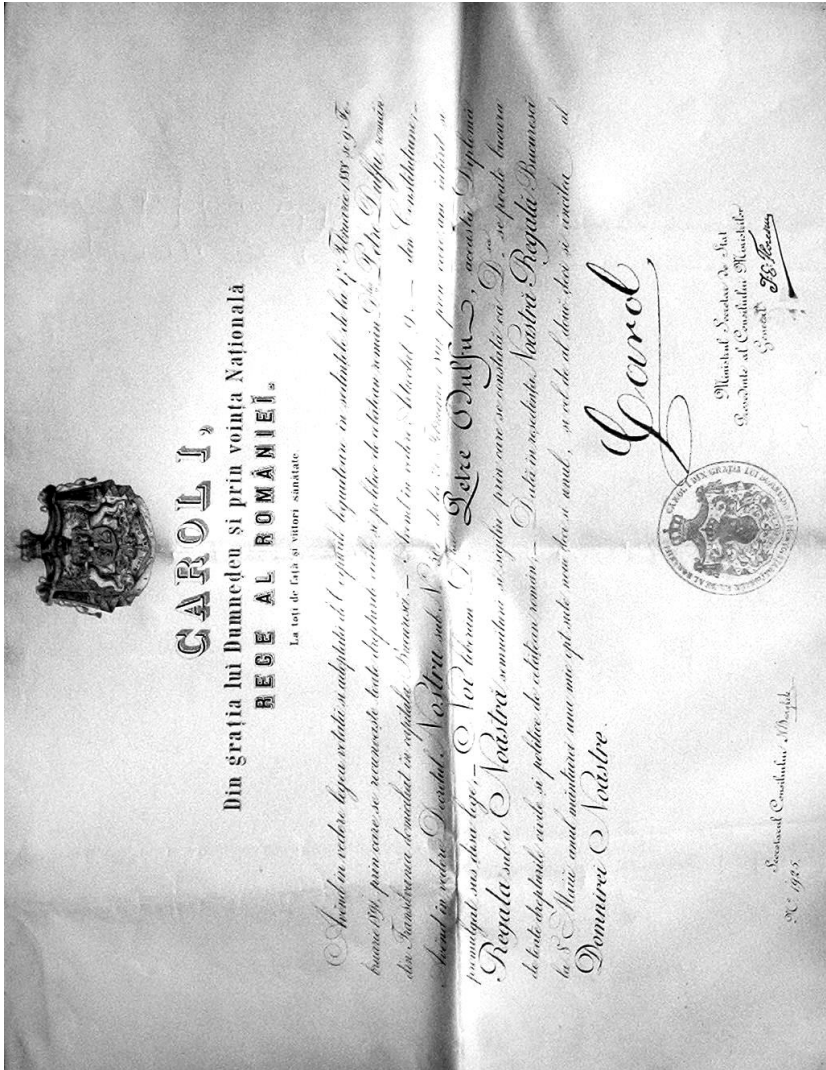 CAROL I,
Din grația lui Dumnedeu și prin voința Națională
REGE AL ROMÂNIEĬ.
La toți de față și viitori sănătate
Avênd in vedere legea votată si adoptată de Corpurile legiuitoare in sedințele de la 17 Februarie 188 și 9 Fe-
bruarie 1891, prin care se recunoaște toate drepturile civile si politice de cetatean român Dlui Petre Dulfu, român
din Transilvania domiciliat în capitala Bucuresci, Avênd in vedere Articolul 9. din Constitutiune;
Avênd in vedere Decretul Nostru sub No de la Februarie 1891 prin care am intărit si
promulgat sus disa lege; Noi liberam Petre Dulfu, aceasta Diplomă
Regala sub a Noăstră semnătură si sigiliu prin care se constată că Dsa se poate bucura
de toate drepturile civile și politice de cetățean român. Dată în reședința Noastră Regală Bucuresci
la 8 Maiŭ anul mântuirei una mie opt sute nouă deci si unul, și cel de al două deci si cincilea al
Domnirei Noăstre.
Carol
CAROL I DIN GRAȚIA LUI DUMNEDEU REGE AL ROMÂNIEI
Ministrul Secretar de Stat
Presedinte al Consiliului Ministrilor
General
Secretarul Consiliului
No 1925.